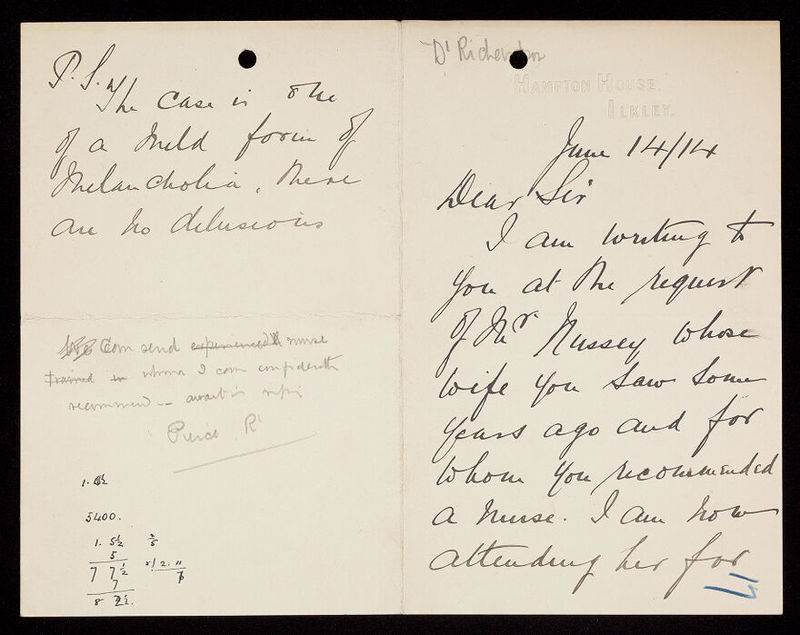 P.S. The case is one
of a mild form of
Melancholia, there
are no delusions
Can send experienced nurse
trained in whom I can confidently
recommend — await
Pierce
1.
5400.
1. 5½
5
7 7½
7
Dr Richardson
HAMPTON HOUSE,
ILKLEY.
June 14/14
Dear Sir
I am writing to
you at the request
of Mr Nussey whose
wife you saw some
years ago and for
whom you recommended
a nurse. I am now
attending her for